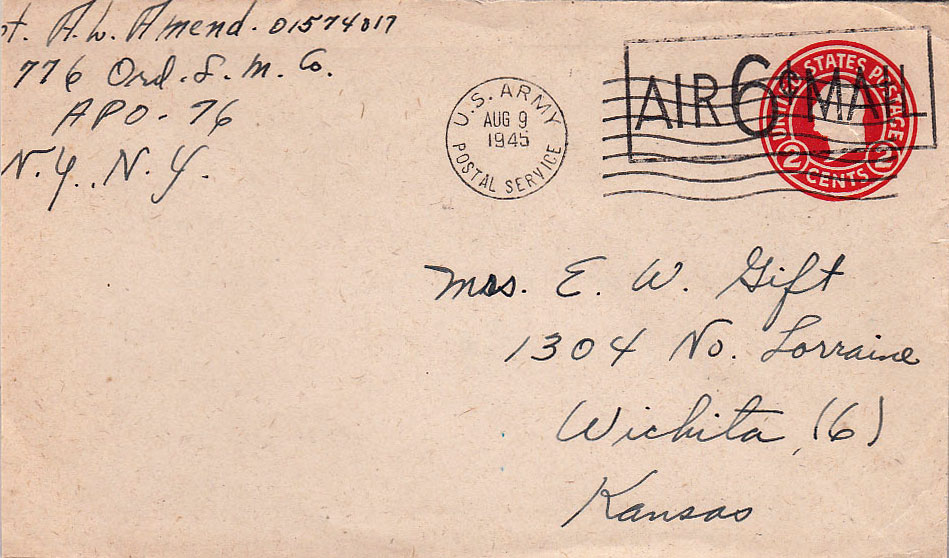 pt. A. W. Amend. 01574017
776 Ord. S. M. Co.
APO - 76
N. Y., N. Y.
U.S. ARMY
AUG 9
1945
POSTAL SERVICE
AIR 6¢ MAIL
UNITED STATES POSTAGE
2 CENTS 2
Mrs. E. W. Gift
1304 No. Lorraine
Wichita (6)
Kansas